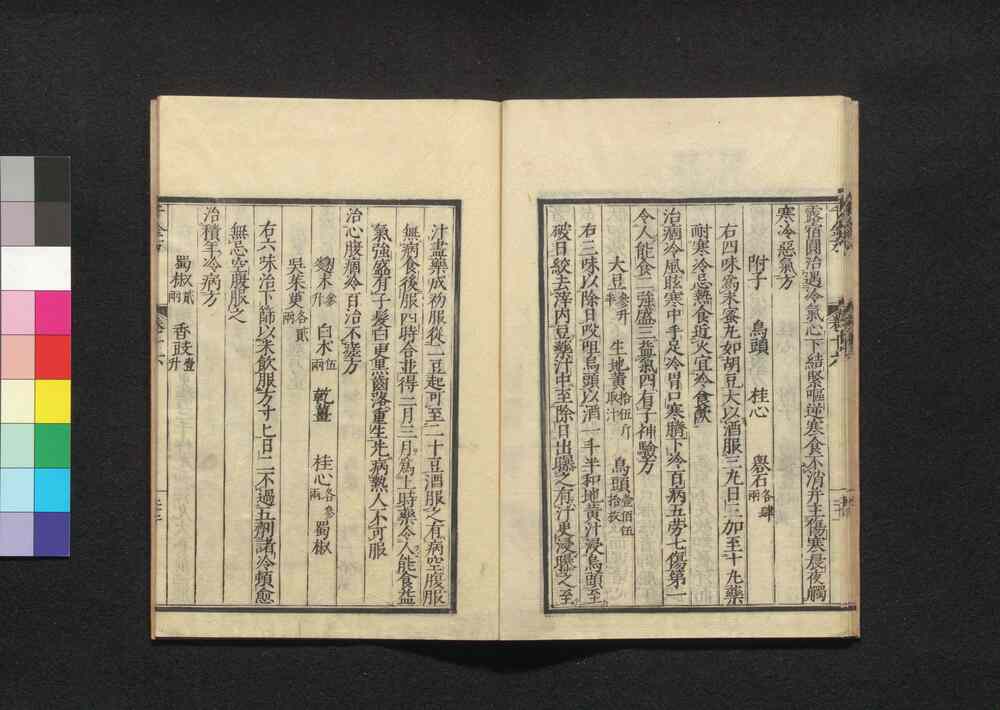 露宿鬪治遇冷氣心下結緊嘔逆寒食不消并主傷寒晨夜觸
寒冷惡氣方
附子 烏頭 桂心 礜石各肆兩
右四味爲末蜜丸如胡豆大以酒服三丸日三加至十丸藥
耐寒冷忌熱食近火宜冷食飲
治痼冷風眩寒中手足冷胃口寒臍下冷百病五勞七傷第一
令人能食二強盛三益氣四有子神驗方
大豆參升半 生地黃拾伍斤取汁 烏頭壹佰伍拾枚
右三味以除日㕮咀烏頭以酒一斗半和地黃汁浸烏頭至
破日絞去滓內豆藥汁中至除日出曝之有汁更浸曝之至
汁盡藥成初服從二豆起可至二十豆酒服之有病空腹服
無病食後服四時合並得二月三月爲上時藥令人能食益
氣強盛有子髮白更黑齒落重生先病熱人不可服
治心腹痼冷百治不差方
麴末參升 白朮伍兩 乾薑 桂心各參兩 蜀椒
吳茱萸各貳兩
右六味治下篩以米飲服方寸匕日二不過五劑諸冷頓愈
無忌空腹服之
治積年冷病方
蜀椒貳兩 香豉壹升